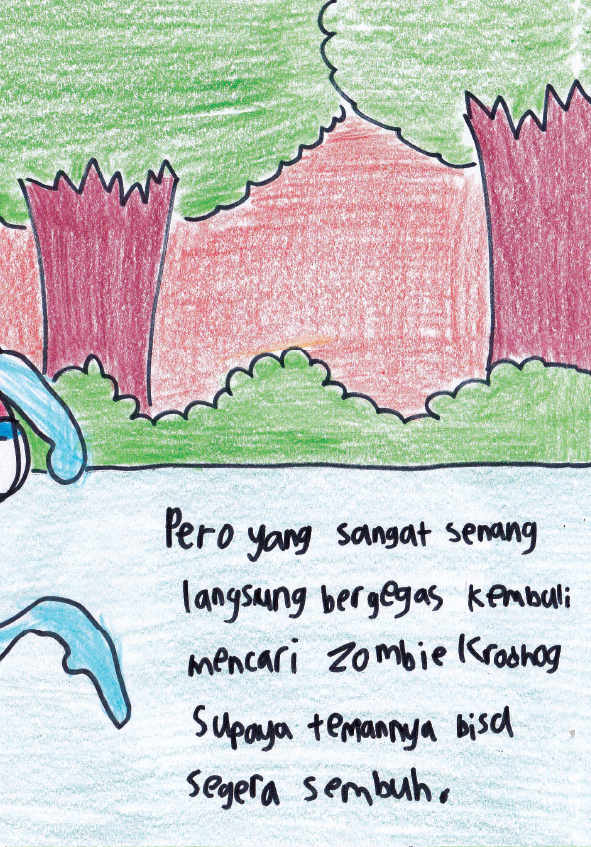 Pero yang sangat senang
langsung bergegas kembali
mencari Zombie Kroshog
Supaya temannya bisa
segera sembuh.